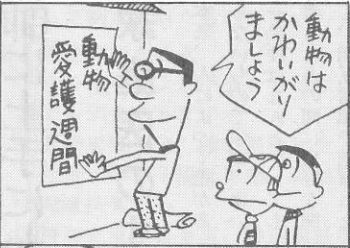 動物は
かわいがり
ましょう
動物
愛護週間